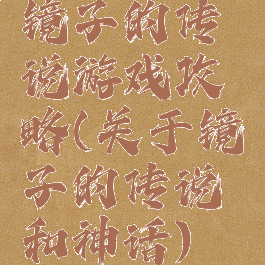 镜子的传
说游戏攻
略(关于镜
子的传说
和神话)